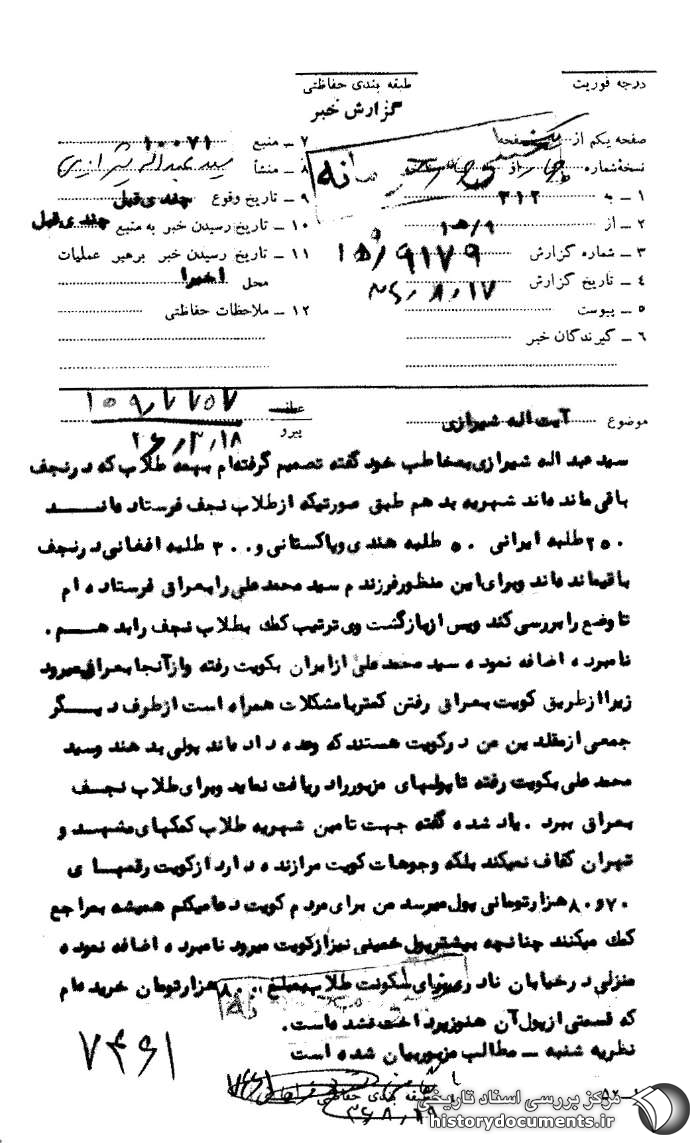 درجه فوریت
طبقه بندی حفاظتی
گزارش خبر
صفحه یکم از یک صفحه
نسخه شماره از
۱ ــ به ۳۱۲
۲ ــ از ۱۵/۹
۳ ــ شماره گزارش ۱۵/۹۱۷۹
۴ ــ تاریخ گزارش ۲۶/۸/۱۷
۵ ــ پیوست
۶ ــ گیرندگان خبر
۷ ــ منبع ۱۰۰۷۱
۸ ــ منشأ سید عبداله شیرازی
۹ ــ تاریخ وقوع چندی قبل
۱۰ ــ تاریخ رسیدن خبر به منبع چندی قبل
۱۱ ــ تاریخ رسیدن خبر برهبر عملیات
محل اخیرا
۱۲ ــ ملاحظات حفاظتی
موضوع آیت اله شیرازی
عطف
پیرو
۲۶/۲/۱۸
سید عبد اله شیرازی بمخاطب خود گفته تصمیم گرفته‌ام بهمه طلاب که در نجف
باقی مانده اند شهریه بدهم طبق صورتیکه از طلاب نجف فرستاده اند
۲۵۰ طلبه ایرانی ۵۰ طلبه هندی و پاکستانی و ۳۰۰ طلبه افغانی در نجف
باقیمانده اند و برای این منظور فرزندم سید محمد علی را بعراق فرستاده ام
تا وضع را بررسی کند و پس از بازگشت وی ترتیب کمک بطلاب نجف را بدهم .
نامبرده اضافه نموده سید محمد علی از ایران بکویت رفته و از آنجا بعراق میرود
زیرا از طریق کویت بعراق رفتن کمتر با مشکلات همراه است از طرف دیگر
جمعی از مقلدین من در کویت هستند که وعده داده اند پولی بدهند و سید
محمد علی بکویت رفته تا پولهای مزبور را دریافت نماید و برای طلاب نجف
بعراق ببرد . یاد شده گفته جهت تامین شهریه طلاب کمکهای مشهد و
تهران کفاف نمیکند بلکه وجوهات کویت مرا زنده دارد از کویت رقمهای
۷۰ و ۸۰ هزار تومانی پول میرسد من برای مردم کویت دعا میکنم همیشه بمراجع
کمک میکنند چنانچه بیشتر پول خمینی نیز از کویت میرود نامبرده اضافه نموده
منزلی در خیابان نادری برای سکونت طلاب بمبلغ ۸۰۰ هزار تومان خریده ام
که قسمتی از پول آن هنوز پرداخت نشده است.
نظریه شنبه ــ مطالب مزبور بیان شده است
۷۴۶۱
طبقه بندی حفاظتی
۲۶/۸/۱۹
مرکز بررسی اسناد تاریخی
historydocuments.ir